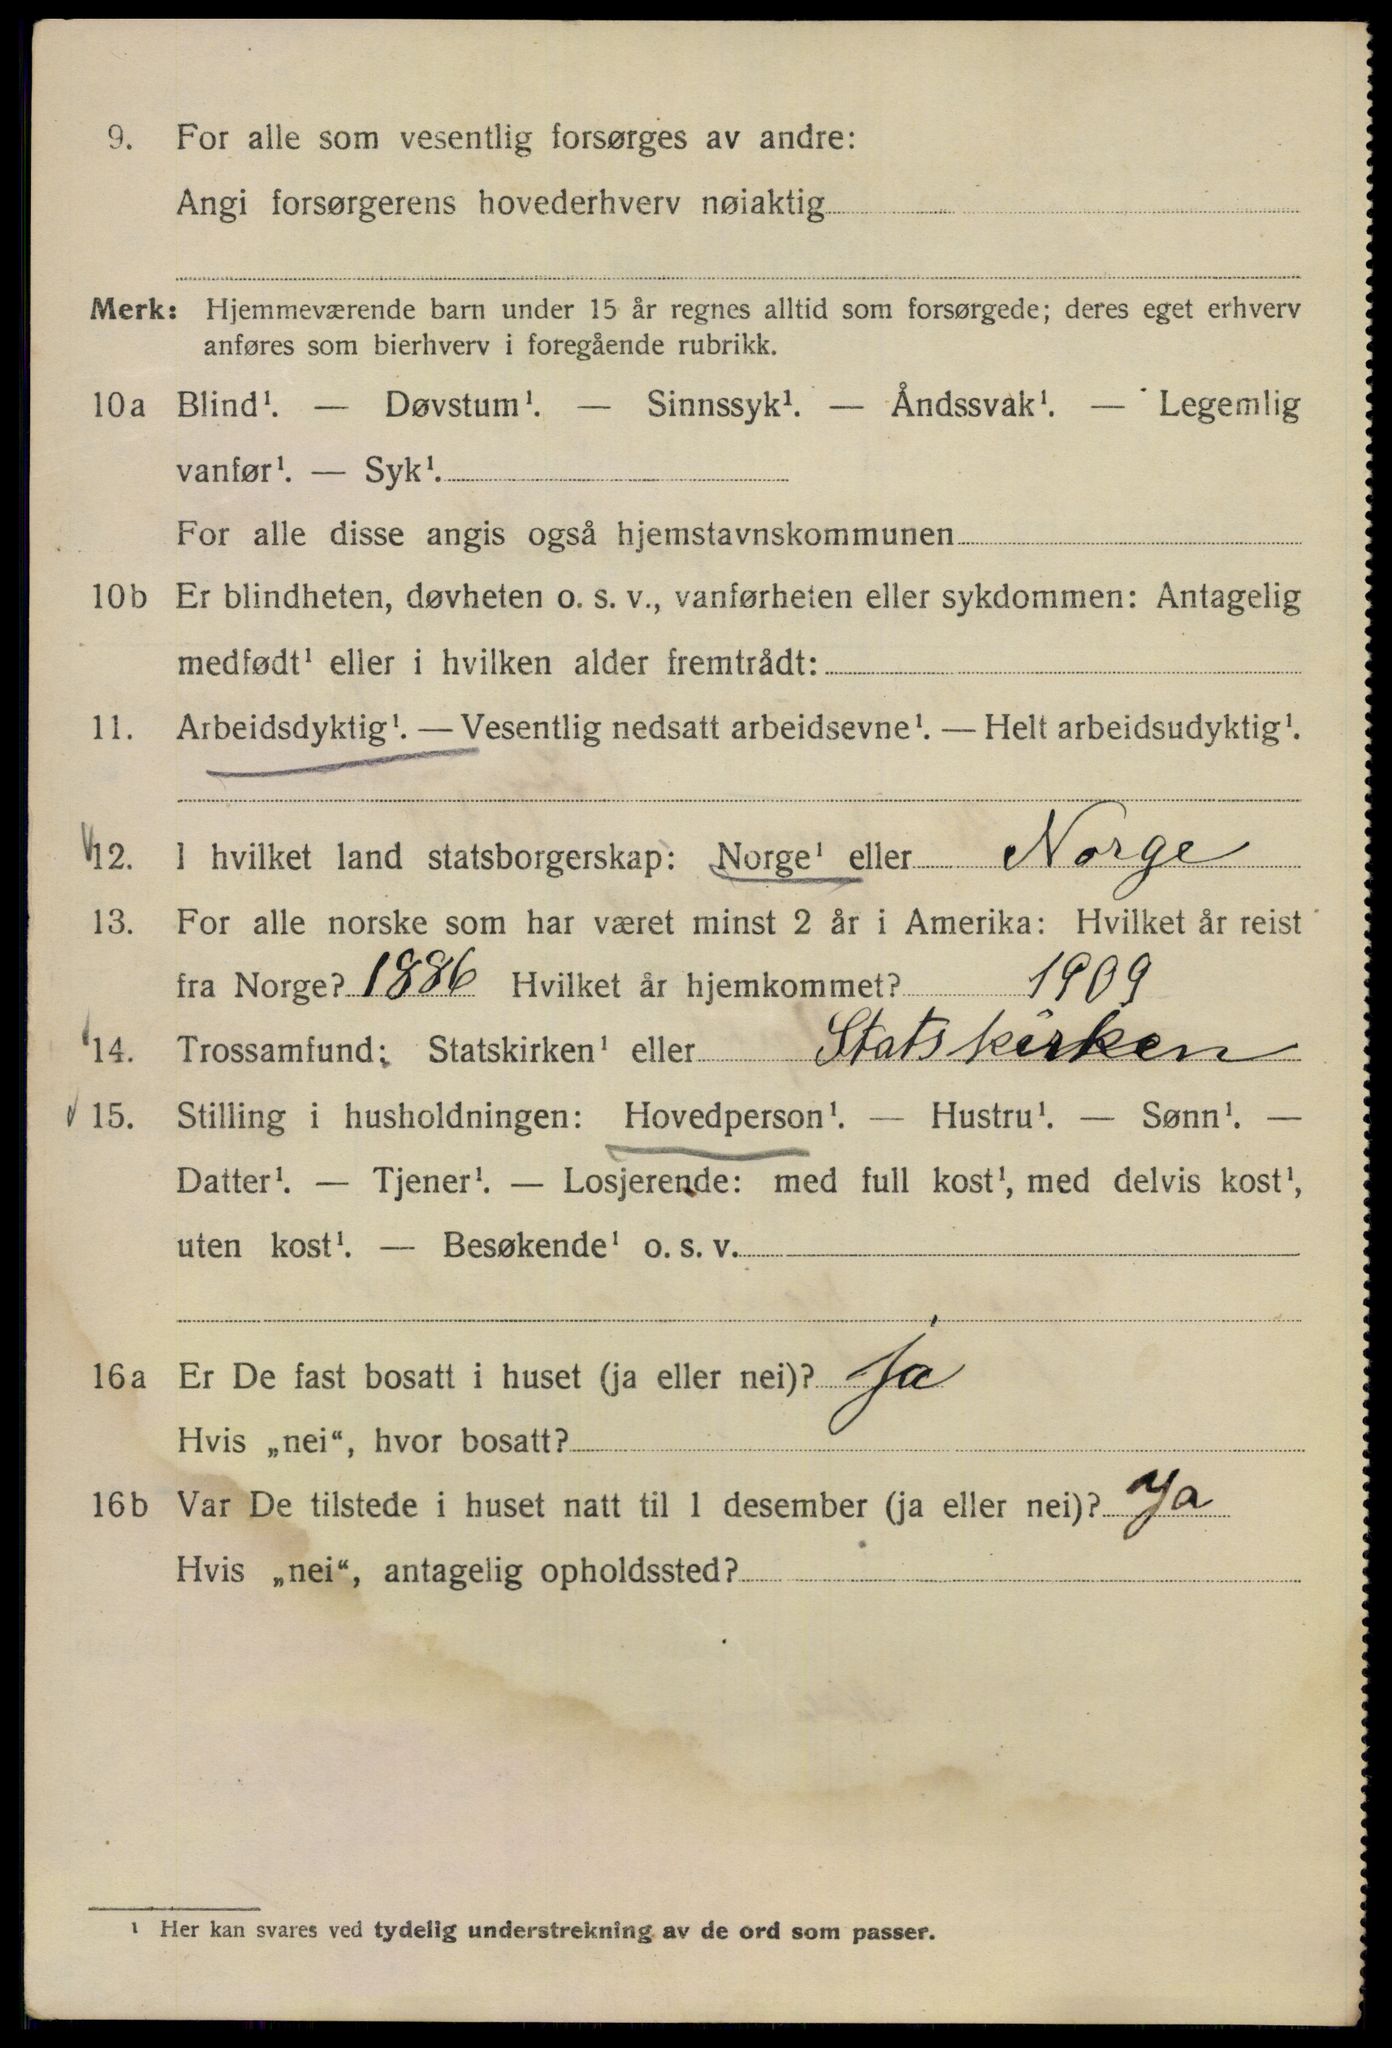 9. For alle som vesentlig forsørges av andre:
Angi forsørgerens hovederhverv nøiaktig
Merk: Hjemmeværende barn under 15 år regnes alltid som forsørgede; deres eget erhverv
anføres som bierhverv i foregående rubrikk.
10a Blind¹. — Døvstum¹. — Sinnssyk¹. — Åndssvak¹. — Legemlig
vanfør¹. — Syk¹.
For alle disse angis også hjemstavnskommunen
10b Er blindheten, døvheten o. s. v., vanførheten eller sykdommen: Antagelig
medfødt¹ eller i hvilken alder fremtrådt:
11. Arbeidsdyktig¹. — Vesentlig nedsatt arbeidsevne¹. — Helt arbeidsudyktig¹.
12. I hvilket land statsborgerskap: Norge¹ eller Norge
13. For alle norske som har været minst 2 år i Amerika: Hvilket år reist
fra Norge? 1886 Hvilket år hjemkommet? 1909
14. Trossamfund: Statskirken¹ eller Statskirken
15. Stilling i husholdningen: Hovedperson¹. — Hustru¹. — Sønn¹. —
Datter¹. — Tjener¹. — Losjerende: med full kost¹, med delvis kost¹,
uten kost¹. — Besøkende¹ o. s. v.
16a Er De fast bosatt i huset (ja eller nei)? Ja
Hvis „nei“, hvor bosatt?
16b Var De tilstede i huset natt til 1 desember (ja eller nei)? Ja
Hvis „nei“, antagelig opholdssted?
¹ Her kan svares ved tydelig understrekning av de ord som passer.